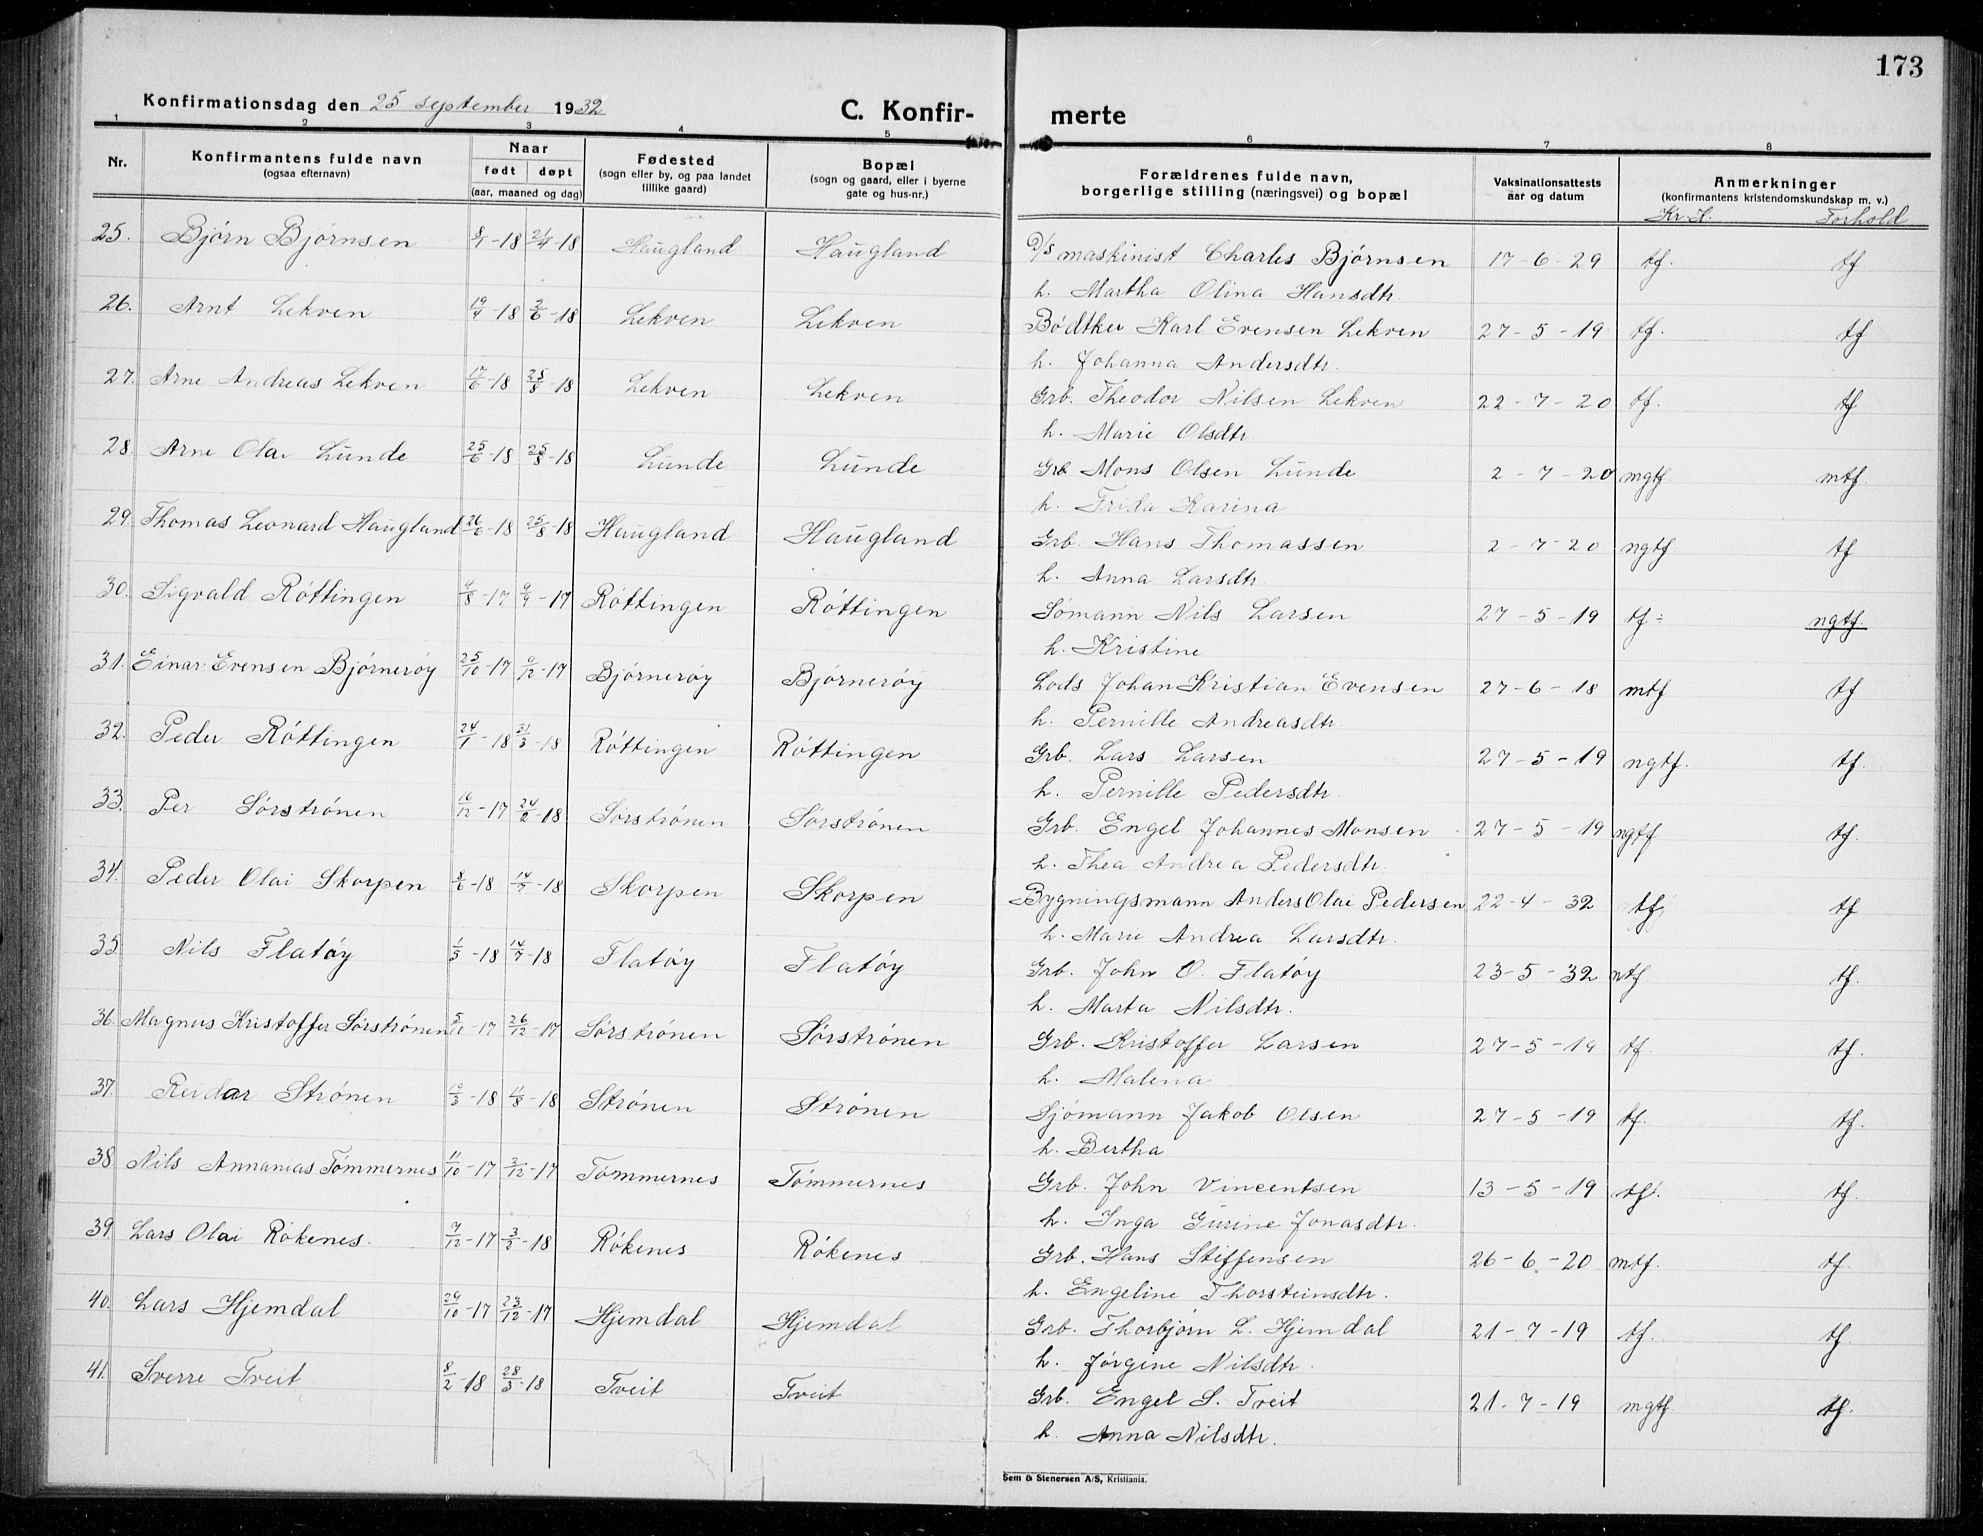 173
Konfirmationsdag den 25 september 1932
C. Konfir- merte
1 2 3 4 5 6 7 8
Nr. Konfirmantens fulde navn (ogsaa efternavn) Naar født døpt (aar, maaned og dag) Fødested (sogn eller by, og paa landet tillike gaard) Bopæl (sogn og gaard, eller i byerne gate og hus-nr.) Forældrenes fulde navn, borgerlige stilling (næringsvei) og bopæl Vaksinationsattests aar og datum Anmerkninger (konfirmantens kristendomskundskap m. v.)
Kr. K. Forhold
25. Bjørn Bjørnsen 8/1-18 21/4-18 Haugland Haugland D/s maskinist Charles Bjørnsen 17-6-29 tf. tf
h. Martha Olina Hansdtr.
26. Arnt Lekven 19/4-18 2/6-18 Lekven Lekven Bødtker Karl Evensen Lekven 27-5-19 tf. tf
h. Johanna Andersdtr.
27. Arne Andreas Lekven 17/6-18 25/8-18 Lekven Lekven Grb. Theodor Nilsen Lekven 22-7-20 tf. tf
h. Marie Olsdtr.
28. Arne Olai Lunde 25/6-18 25/8-18 Lunde Lunde Grb Mons Olsen Lunde 2-7-20 mgtf. mtf.
h. Frida Karina
29. Thomas Leonard Haugland 26/6-18 25/8-18 Haugland Haugland Grb. Hans Thomassen 2-7-20 ngtf tf
h. Anna Larsdtr.
30. Sigvald Røttingen 4/8-17 9/9-17 Røttingen Røttingen Sømann Nils Larsen 27-5-19 tf. ngtf.
h. Kristine
31. Einar Evensen Bjørnerøy 25/10-17 9/12-17 Bjørnerøy Bjørnerøy Lods Johan Kristian Evensen 27-6-18 mtf tf
h. Pernille Andreasdtr.
32. Peder Røttingen 24/1-18 31/3-18 Røttingen Røttingen Grb. Lars Larsen 27-5-19 ngtf. tf.
h. Pernille Pedersdtr.
33. Per Sørstrønen 16/12-17 24/2-18 Sørstrønen Sørstrønen Grb. Engel Johannes Monsen 27-5-19 ngtf tf.
h. Thea Andrea Pedersdtr.
34. Peder Olai Skorpen 8/6-18 14/7-18 Skorpen Skorpen Bygningsmann Anders Olai Pedersen 22-4-32 tf. tf
h. Marie Andrea Larsdtr.
35. Nils Flatøy 1/5-18 14/7-18 Flatøy Flatøy Grb. John O. Flatøy 23-5-32 ntf tf.
h. Marta Nilsdtr.
36. Magnus Kristoffer Sørstrønen 5/10-17 26/12-17 Sørstrønen Sørstrønen Grb. Kristoffer Larsen 27-5-19 tf. tf.
h. Malena
37. Reidar Strønen 10/3-18 11/8-18 Strønen Strønen Sjømann Jakob Olsen 27-5-19 tf. tf.
h. Bertha
38. Nils Annanias Tømmernes 11/10-17 2/12-17 Tømmernes Tømmernes Grb. John Vincentsen 13-5-19 tf. tf.
h. Inga Gurine Jonasdtr.
39. Lars Olai Røkenes. 7/12-17 3/2-18 Røkenes Røkenes Grb. Hans Steffensen 26-6-20 mtf. tf.
h. Engeline Thorsteinsdtr.
40. Lars Hjemdal 29/10-17 23/12-17 Hjemdal Hjemdal Grb. Thorbjørn L. Hjemdal 21-7-19 tf. tf.
h. Jørgine Nilsdtr.
41. Sverre Tveit 8/2-18 28/3-18 Tveit Tveit Grb. Engel S. Tveit 21-7-19 mgtf tf.
h. Anna Nilsdtr.
Sem & Stenersen A/S, Kristiania.